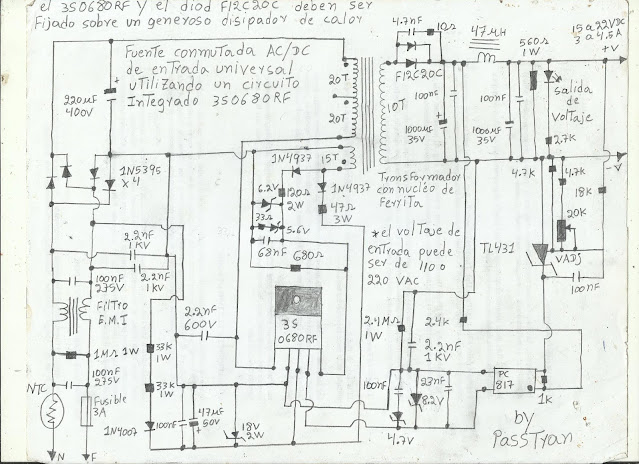 el 3S0680RF Y el diod F12C20C deben ser
Fijado sobre un generoso disipador de calor
Fuente conmutada AC/DC
de entrada universal
utilizando un circuito
Integrado 3S0680RF
220µF
400V
20T
20T
10T
15T
4.7nF
10Ω
F12C20C
100nF
1000µF
35V
47µH
100nF
1000µF
35V
560Ω
1W
15 a 22VDC
3 a 4.5A
+V
salida
de
voltaje
2.7K
-V
1N5395
x 4
1N4937
6.2V
120Ω
2W
33Ω
5.6V
68nF
680Ω
1N4937
47Ω
3W
Transformador
con nucléo de
Ferrita
*el voltaje de
entrada puede
ser de 110 o
220 VAC
4.7K
4.7K
18K
20K
VADJ
TL431
100nF
2.2nF
1KV
2.2nF
1KV
100nF
275V
Filtro
E.M.I
2.2nF
600V
3S
0680RF
2.4MΩ
1W
2.4K
2.2nF
1KV
1MΩ 1W
100nF
275V
NTC
Fusible
3A
33K
1W
33K
1W
1N4007
100nF
47µF
50V
18V
2W
100nF
4.7V
23nF
8.2V
PC
817
1K
by
PassTran
N
F